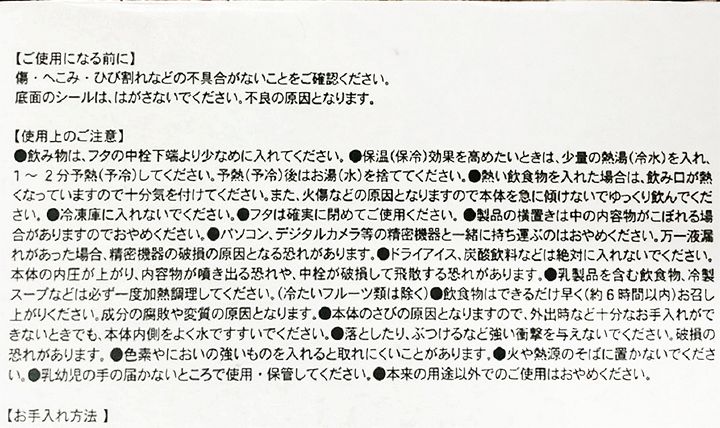 【ご使用になる前に】
傷・へこみ・ひび割れなどの不具合がないことをご確認ください。
底面のシールは、はがさないでください。不良の原因となります。
【使用上のご注意】
●飲み物は、フタの中栓下端より少なめに入れてください。●保温(保冷)効果を高めたいときは、少量の熱湯(冷水)を入れ、
1～2分予熱(予冷)してください。予熱(予冷)後はお湯(水)を捨ててください。●熱い飲食物を入れた場合は、飲み口が熱
くなっていますので十分気を付けてください。また、火傷などの原因となりますので本体を急に傾けないでゆっくり飲んでくだ
さい。●冷凍庫に入れないでください。●フタは確実に閉めてご使用ください。●製品の横置きは中の内容物がこぼれる場
合がありますのでおやめください。●パソコン、デジタルカメラ等の精密機器と一緒に持ち運ぶのはおやめください。万一液漏
れがあった場合、精密機器の破損の原因となる恐れがあります。●ドライアイス、炭酸飲料などは絶対に入れないでください。
本体の内圧が上がり、内容物が噴き出る恐れや、中栓が破損して飛散する恐れがあります。●乳製品を含む飲食物、冷製
スープなどは必ず一度加熱調理してください。(冷たいフルーツ類は除く)●飲食物はできるだけ早く(約6時間以内)お召し
上がりください。成分の腐敗や変質の原因となります。●本体のさびの原因となりますので、外出時など十分なお手入れがで
きないときでも、本体内側をよく水ですすいでください。●落としたり、ぶつけるなど強い衝撃を与えないでください。破損の
恐れがあります。●色素やにおいの強いものを入れると取れにくいことがあります。●火や熱源のそばに置かないでくださ
い。●乳幼児の手の届かないところで使用・保管してください。●本来の用途以外でのご使用はおやめください。
【お手入れ方法】